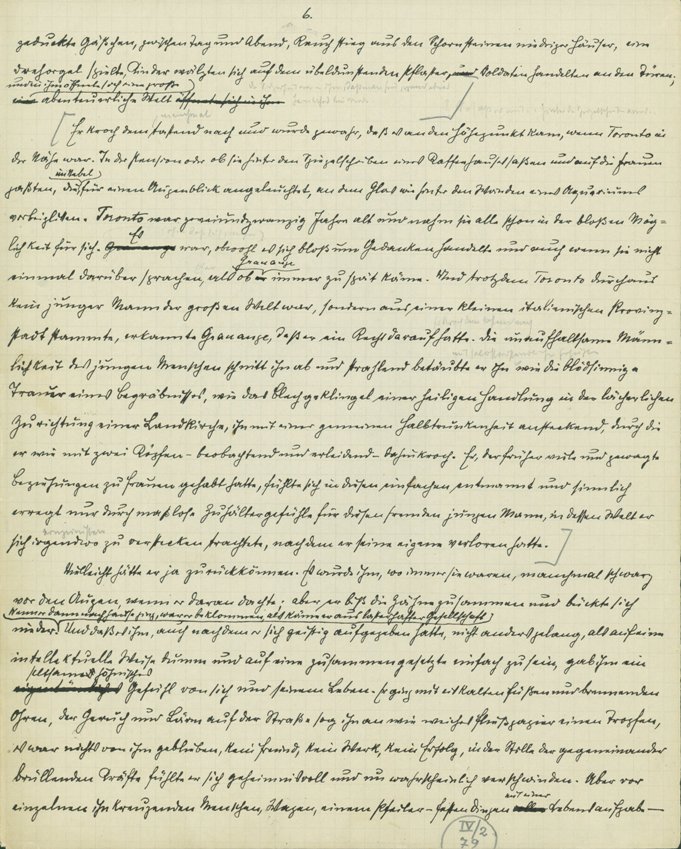 6.
geduckte Gäßchen, zwischen Tag und Abend, Rauch stieg aus den Schornsteinen niedriger Häuser, eine
Drehorgel spielte, Kinder wälzten sich auf dem übelduftenden Pflaster, und Soldaten handelten an den Türen;
und in ihm öffnete sich eine große
eine abenteuerliche Welt öffnete sich in ihm
Er kroch dem tastend nach und wurde gewahr, daß es an den Höhepunkt kam, wenn Toronto in
der Nähe war. In der Pension oder ob sie hinter den Spiegelscheiben eines Kaffeehauses saßen und auf die Frauen
im Nebel
paßten, die, für einen Augenblick angeleuchtet, an dem Glas wie hinter den Wänden eines Aquariums
vorbeiglitten. Toronto war zweiundzwanzig Jahre alt und nahm sie alle schon in der bloßen Mög-
Es
lichkeit für sich. war, obwohl es sich bloß um Gedanken handelte und auch wenn sie nicht
Granange
einmal darüber sprachen, als ob er immer zu spät käme. Und trotzdem Toronto durchaus
kein junger Mann der großen Welt war, sondern aus einer kleinen italienischen Provinz-
stadt stammte, erkannte Granange, daß er ein Recht darauf hatte. Die unaufhaltsame Männ-
lichkeit des jungen Menschen schnitt ihn ab und prahlend betäubte er ihn wie die blödsinnige
Trauer eines Begräbnisses, wie das Blechgeklingel einer heiligen Handlung in der lächerlichen
Zurichtung einer Landkirche, ihn mit einer gemeinen Halbtrunkenheit ansteckend, durch die
er wie mit zwei Köpfen – beobachtend und erleidend – dahinkroch. Er, der früher viele und gewagte
Beziehungen zu Frauen gehabt hatte, fühlte sich in diesen einfachen entmannt und sinnlich
erregt nur durch maßlose Zuhältergefühle für diesen fremden jungen Mann, in dessen Welt er
sich irgendwo zu verstecken trachtete, nachdem er seine eigene verloren hatte.
Vielleicht hätte er ja zurückkönnen. Es wurde ihm, wo immer sie waren, manchmal schwarz
vor den Augen, wenn er daran dachte; aber er biß die Zähne zusammen und bückte sich
Wenn er dann nach Hause ging, war er beklommen, als käme er aus lasterhafter Gesellschaft
nieder. Und daß es ihm, auch nachdem er sich geistig aufgegeben hatte, nicht anders gelang, als auf eine
intellektuelle Weise dumm und auf eine zusammengesetzte einfach zu sein, gab ihm ein
seltsames höhnisches
eigentümliches Gefühl von sich und seinem Leben. Er ging mit eiskalten Füßen und brennenden
Ohren, der Geruch und Lärm auf der Straße sog ihn an wie weiches Flußpapier einen Tropfen,
es war nichts von ihm geblieben, kein Freund, kein Werk, kein Erfolg, in der Stille der gegeneinander
brüllenden Kräfte fühlte er sich geheimnisvoll und unwahrscheinlich verschwinden. Aber vor
mit einer
einzelnen ihn kreuzenden Menschen, Wagen, einem Pfeiler – festen Dingen Lebensaufgabe –
IV/2
79